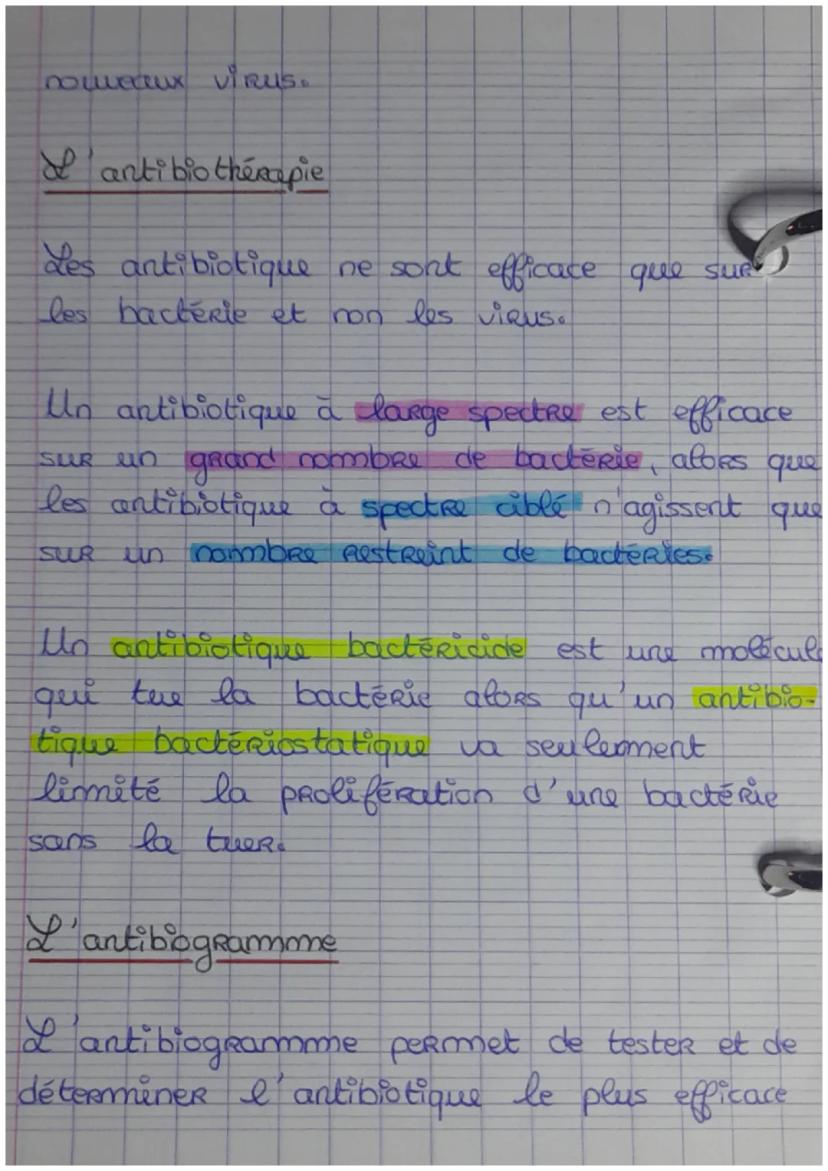 nouveaux virus.
L'antibiothérapie
Les antibiotique ne sont efficace que sur
les bactérie et non les virus.
Un antibiotique à large spectre est efficace
sur un grand nombre de bactérie, alors que
les antibiotique à spectre ciblé n'agissent que
sur un nombre restreint de bactéries.
Un antibiotique bactéricide est une molécul
qui tue la bactérie alors qu'un antibio-
tique bactériostatique va seulement
limité la prolifération d'une bactérie
sans la tuer.
L'antibiogramme
L'antibiogramme permet de tester et de
déterminer l'antibiotique le plus efficace